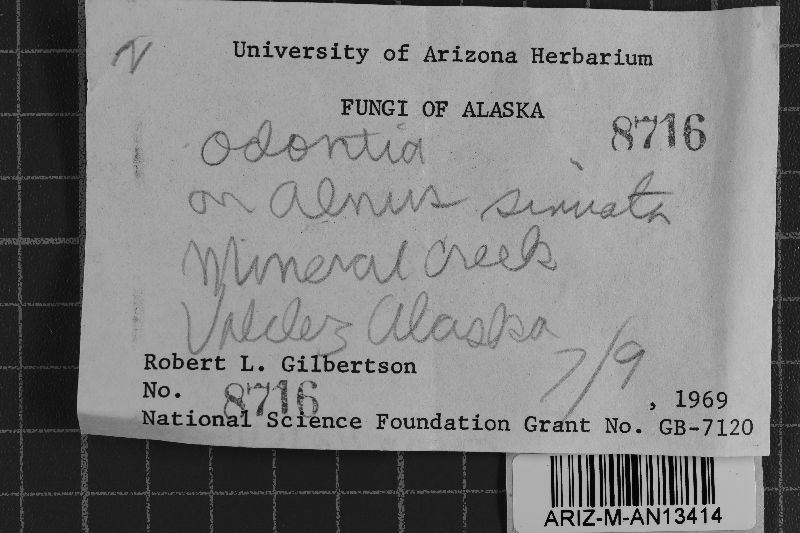 N
University of Arizona Herbarium
FUNGI OF ALASKA
8716
Odontia
on Alnus sinuata
Mineral Creek
Valdez Alaska
Robert L. Gilbertson
No. 8716
7/9, 1969
National Science Foundation Grant No. GB-7120
ARIZ-M-AN13414